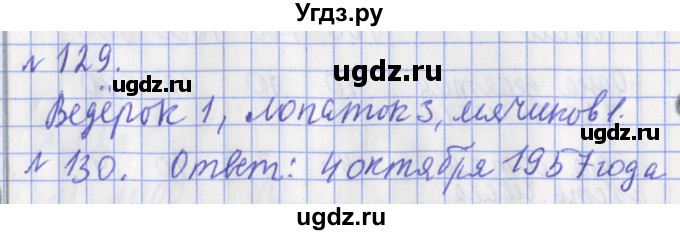 Угдз.ру
№ 129.
ugdz.ru ugdz.ru
Ведёрок 1, лопаток 3, мячиков 1.
ugdz.ru ugdz.ru
№ 130. Ответ: 4 октября 1957 года
ugdz.ru